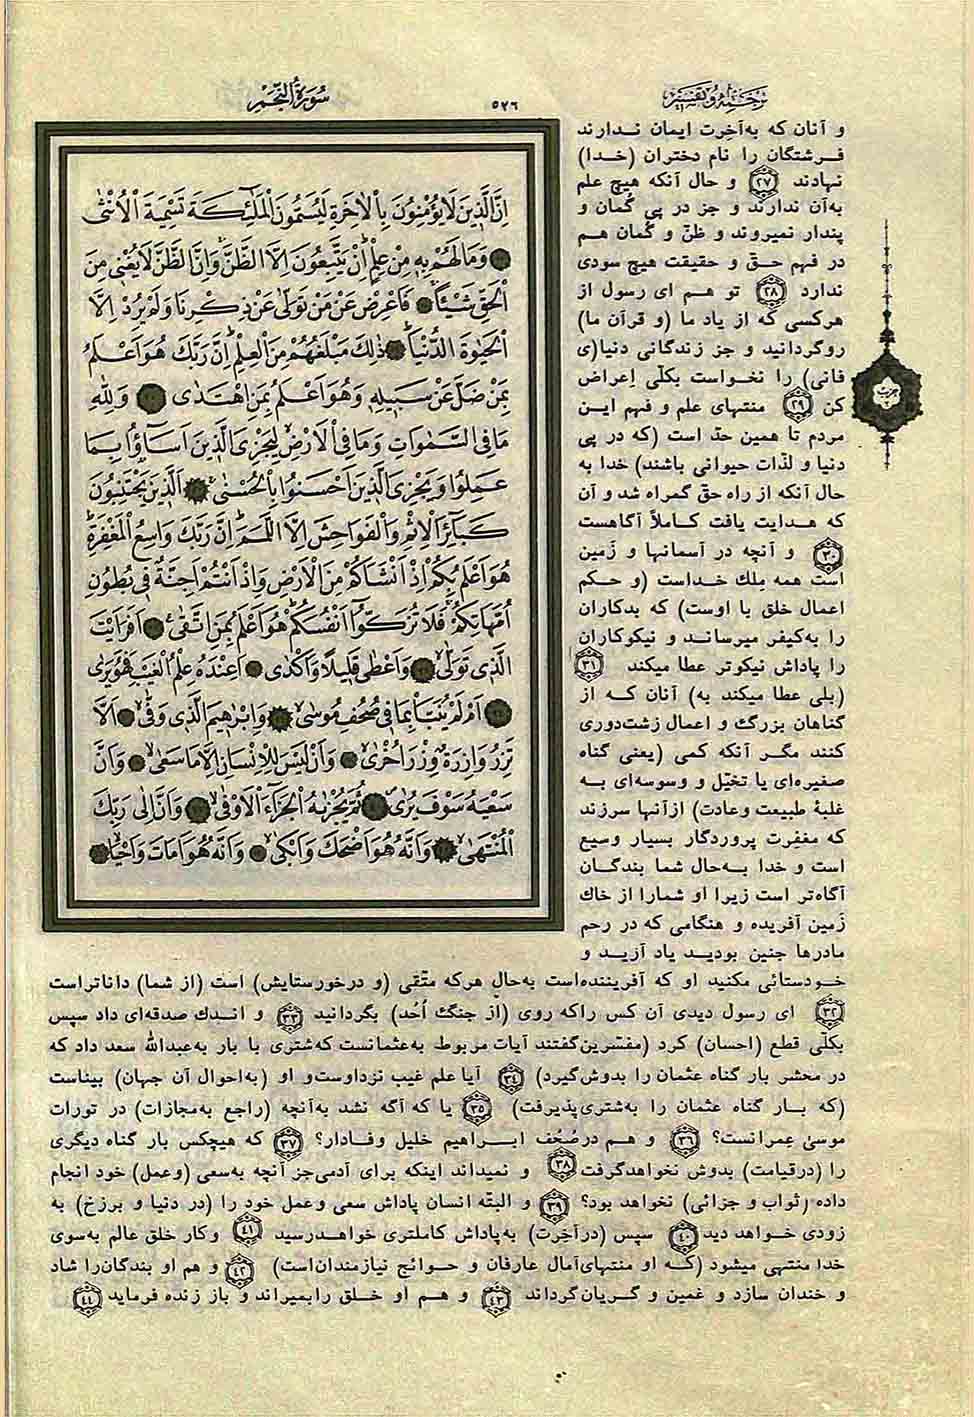 ترجمه و تفسیر
۵۲۶
سُورَةُ النَّجْمِ
اِنَّ الَّذینَ لَا یُؤْمِنُونَ بِالْاٰخِرَةِ لَیُسَمُّونَ الْمَلٰٓئِکَةَ تَسْمِیَةَ الْاُنْثٰی
وَمَا لَهُمْ بِهٖ مِنْ عِلْمٍ اِنْ یَتَّبِعُونَ اِلَّا الظَّنَّ وَاِنَّ الظَّنَّ لَا یُغْنی مِنَ
الْحَقِّ شَیْئًا فَاَعْرِضْ عَنْ مَنْ تَوَلّٰی عَنْ ذِکْرِنَا وَلَمْ یُرِدْ اِلَّا
الْحَیٰوةَ الدُّنْیَا ذٰلِکَ مَبْلَغُهُمْ مِنَ الْعِلْمِ اِنَّ رَبَّکَ هُوَ اَعْلَمُ
بِمَنْ ضَلَّ عَنْ سَبیلِهٖ وَهُوَ اَعْلَمُ بِمَنِ اهْتَدٰی وَلِلّٰهِ
مَا فِی السَّمٰوَاتِ وَمَا فِی الْاَرْضِ لِیَجْزِیَ الَّذینَ اَسَآؤُا بِمَا
عَمِلُوا وَیَجْزِیَ الَّذینَ اَحْسَنُوا بِالْحُسْنٰی اَلَّذینَ یَجْتَنِبُونَ
کَبَآئِرَ الْاِثْمِ وَالْفَوَاحِشَ اِلَّا اللَّمَمَ اِنَّ رَبَّکَ وَاسِعُ الْمَغْفِرَةِ
هُوَ اَعْلَمُ بِکُمْ اِذْ اَنْشَاَکُمْ مِنَ الْاَرْضِ وَاِذْ اَنْتُمْ اَجِنَّةٌ فی بُطُونِ
اُمَّهَاتِکُمْ فَلَا تُزَکُّوا اَنْفُسَکُمْ هُوَ اَعْلَمُ بِمَنِ اتَّقٰی اَفَرَاَیْتَ
الَّذی تَوَلّٰی وَاَعْطٰی قَلیلًا وَاَکْدٰی اَعِنْدَهُ عِلْمُ الْغَیْبِ فَهُوَ یَرٰی
اَمْ لَمْ یُنَبَّاْ بِمَا فی صُحُفِ مُوسٰی وَاِبْرٰهیمَ الَّذی وَفّٰی اَلَّا
تَزِرُ وَازِرَةٌ وِزْرَ اُخْرٰی وَاَنْ لَیْسَ لِلْاِنْسَانِ اِلَّا مَا سَعٰی وَاَنَّ
سَعْیَهُ سَوْفَ یُرٰی ثُمَّ یُجْزٰیهُ الْجَزَآءَ الْاَوْفٰی وَاَنَّ اِلٰی رَبِّکَ
الْمُنْتَهٰی وَاَنَّهُ هُوَ اَضْحَکَ وَاَبْکٰی وَاَنَّهُ هُوَ اَمَاتَ وَاَحْیَا
و آنان که به‌آخِرت ایمان نـدارند
فـرشتگان را نام دختران (خـدا)
نهادند ۲۷ و حال آنکه هیچ علم
به‌آن ندارند و جز در پی گُمان و
پندار نمیروند و ظنّ و گُمان هـم
در فهم حـقّ و حقیقت هیچ سودی
ندارد ۲۸ تو هـم ای رسول از
هرکسی که از یاد ما (و قرآن ما)
روگردانید و جز زندگانی دنیا(ی
فانی) را نخـواست بکلّی اِعراض
کن ۲۹ منتهای علم و فهم ایـن
مردم تا همین حدّ است (که در پی
دنیا و لذّات حیوانی باشند) خدا به
حال آنکه از راه حقّ گمراه شد و آن
که هـدایت یافت کـاملاً آگاهست
۳۰ و آنچه در آسمانها و زَمین
است همه مِلك خـداست (و حـکم
اعمال خلق با اوست) که بدکاران
را به‌کیفر میرسانـد و نیکوکاران
را پاداش نیکوتر عطا میکند ۳۱
(بلی عطا میکند به) آنان کـه از
گناهان بزرگ و اعمال زشت‌دوری
کنند مگـر آنکه کمی (یعنی گناه
صغیره‌ای یا تخیّل و وسوسه‌ای بـه
غلبهٔ طبیعت وعادت) ازآنها سرزند
که مغفرت پروردگار بسیار وسیع
است و خدا بـه‌حال شما بندگـان
آگاه‌تر است زیرا او شمارا از خاك
زَمین آفریده و هنگامی که در رحم
مادرها جنین بودیـد یاد آریـد و
خـودستائی مکنید او که آفریننده‌است به‌حالِ هرکه متّقی (و درخورستایش) است (از شما) داناتراست
۳۲ ای رسول دیدی آن کس راکه روی (از جنگ اُحُد) بگردانید ۳۳ و انـدك صدقه‌ای داد سپس
بکلّی قطع (احسان) کرد (مفسّرین‌گفتند آیات مربوط به‌عثمانست که‌شتری با بار به‌عبدالله سعد داد که
در محشر بار گناه عثمان را بدوش‌گیرد) ۳۴ آیا علم غیب نزداوست‌و او (به‌احوال آن جهان) بیناست
(که بـار گناه عثمان را به‌شتری‌پذیرفت) ۳۵ یا که آگه نشد به‌آنچه (راجع به‌مجازات) در تورات
موسیٰ عِمرانست؟ ۳۶ و هـم درصُحُف ابـراهیم خلیل وفـادار؟ ۳۷ که هیچکس بار گناه دیگری
را (درقیامت) بدوش نخواهدگرفت ۳۸ و نمیداند اینکه برای آدمی‌جز آنچه به‌سعی (وعمل) خود انجام
داده (ثواب و جزائی) نخواهد بود؟ ۳۹ و البتّه انسان پاداش سعی وعمل خود را (در دنیا و برزخ) به
زودی خـواهد دید ۴۰ سپس (درآخِرت) به‌پاداش کاملتری خواهـدرسید ۴۱ وکار خلق عالم به‌سوی
خدا منتهی میشود (کـه او منتهای‌آمال عارفان و حـوائج نیازمندان‌است) ۴۲ و هم او بندگان‌را شاد
و خندان سازد و غمین و گـریان‌گرداند ۴۳ و هـم او خـلق رابمیراند و باز زنده فرماید ۴۴